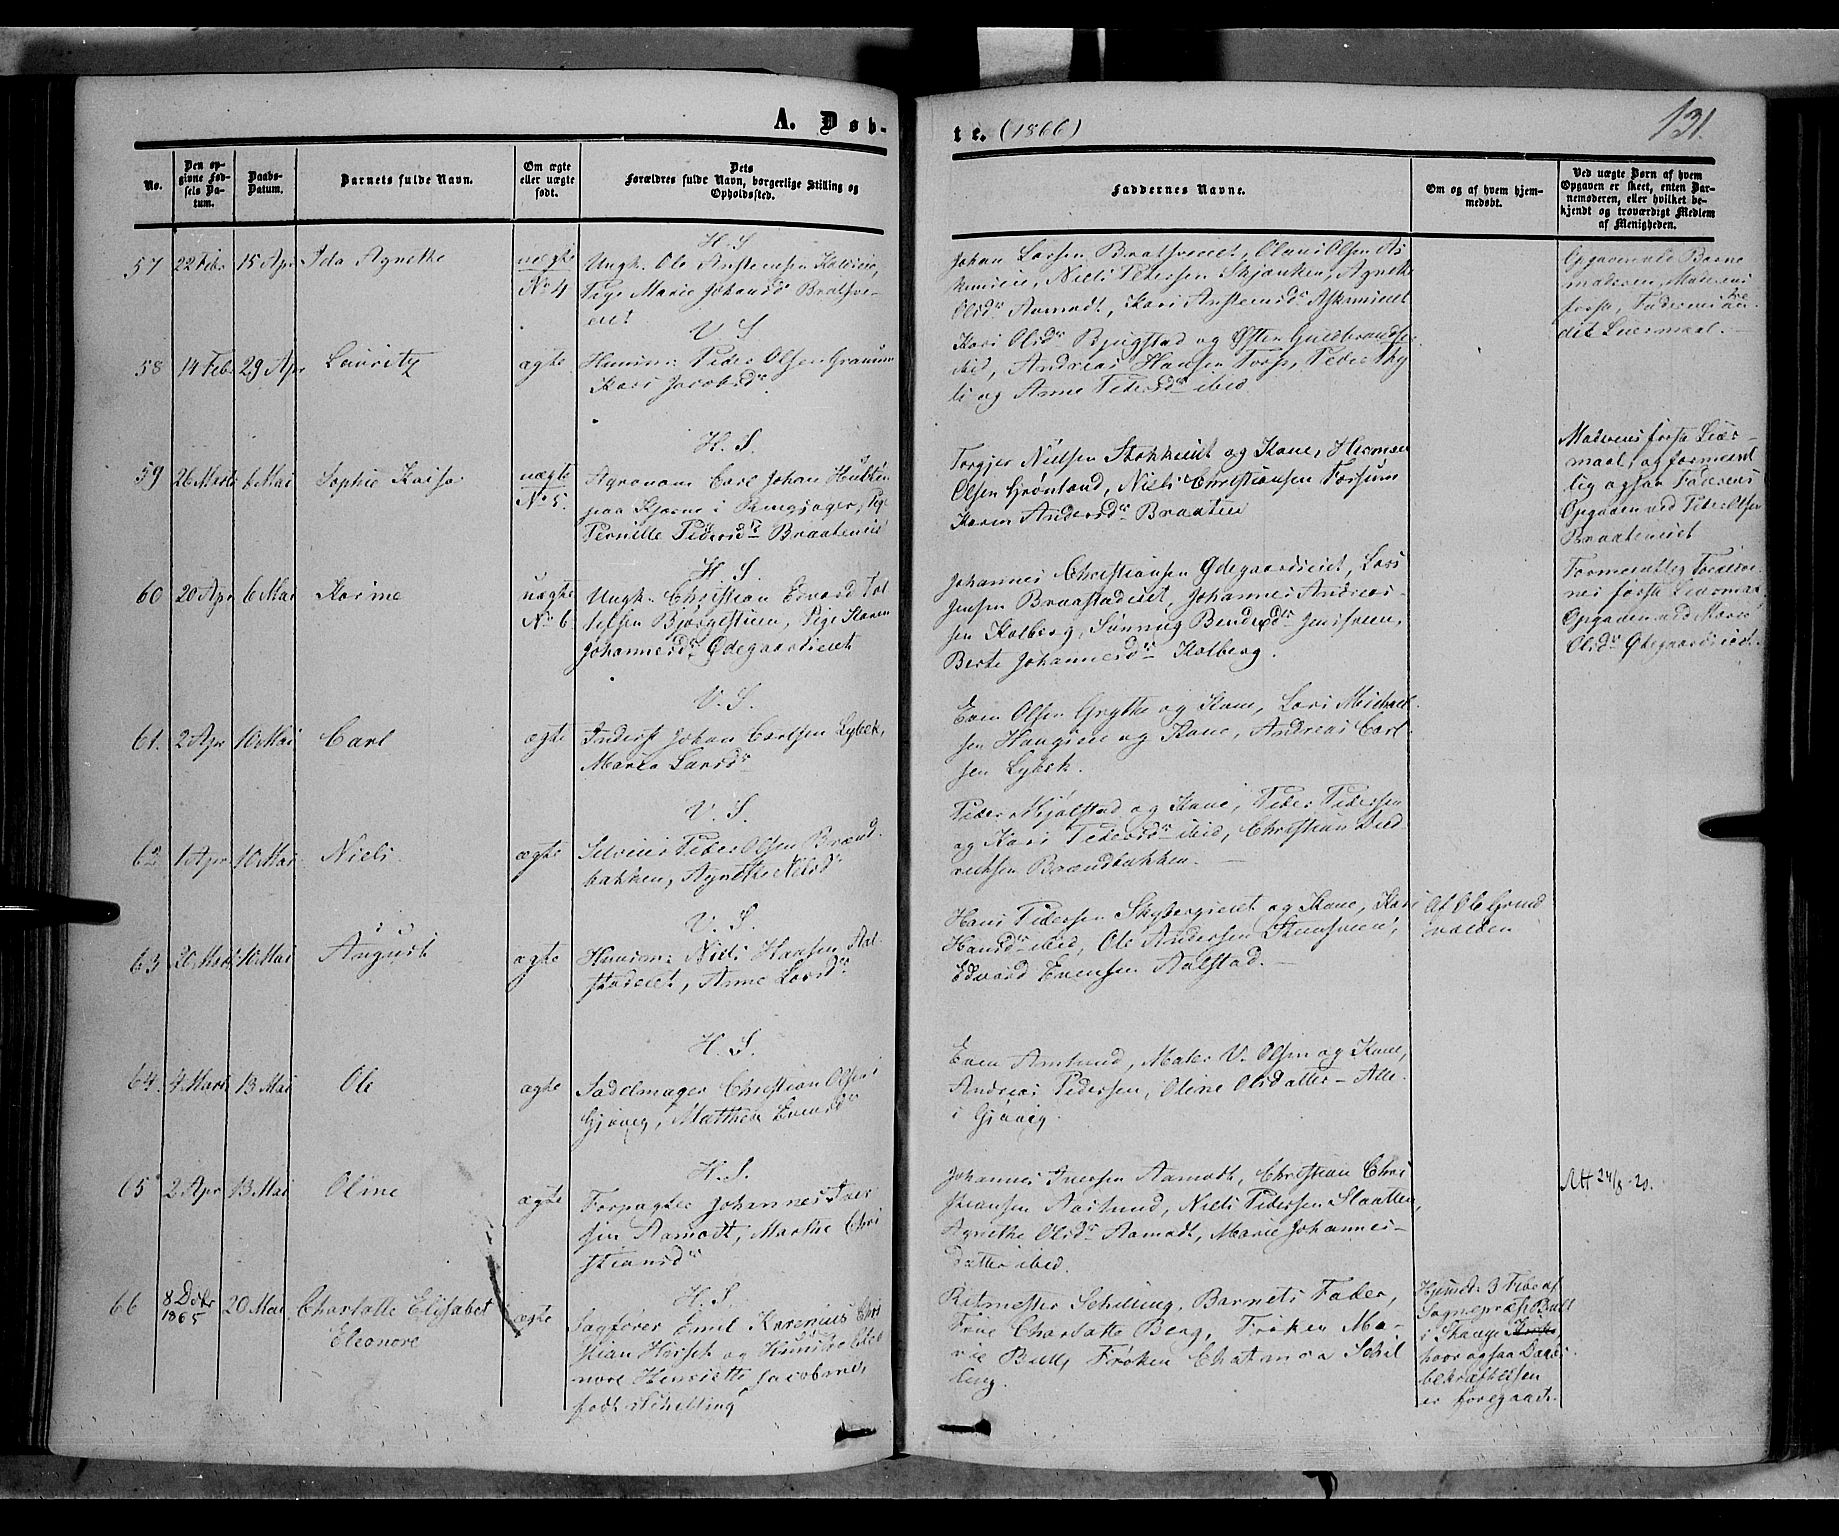 A. Døb-
te. (1866)
131.
No.
Den op-
givne Fød-
sels Da-
tum.
Daabs-
Datum.
Barnets fulde Navn.
Om ægte
eller uægte
født.
Dets
Forældres fulde Navn, borgerlige Stilling og
Opholdssted.
Faddernes Navne.
Om og af hvem hjem-
medøbt.
Ved uægte Børn af hvem
Opgaven er skeet, enten Bar-
nemoderen, eller hvilket be-
kjendt og troværdigt Medlem
af Menigheden.
57 22 Febr 15 Apr Ida Agnethe
uægte
No 4
H. S
Ungk. Ole
Pige Marie Johansdr Bratsve-
eiet
Johan Larsen Bratsveeiet, Olaus Olsen As
Niels Pedersen Skjønken, Agnethe
Olsdr Aamodt, Kari
Opgaven ved Barne
moderen, Moderens
første, Faderens an
det Leiermaal.
58 14 Febr 29 Apr Lauritz
ægte
V. S
Huusm: Peder Olsen Granum
Kari Jacobsdr
Kari Olsdr Bjugstad og Østen Guldbrandsen
ibid, Andreas Hansen Torp, Peder Thy
li og Anne Pedersdr ibid
59 26 Marts 6 Mai Sophie Kaisa
uægte
No 5.
H. S.
Agronom Carl Johan Hultén
paa Hjørne i Ringsager, Pg.
Pernille Pedersdr Braateneiet
Torgjer Nielsen Stokkeeiet og Kone, Herman
Olsen Grønland, Niels Christiansen Forsum
Karen Andersdr Braaten
Moderens første Leier-
maal, og formeent
lig ogsaa Faderens
Opgaven ved Peder Olsen
Braateneiet
60 20 Apr 6 Mai Karine
uægte
No 6
H. S.
Ungk. Christian Edvard Tol
lefsen Bjørgestuen, Pige Karen
Johannesdr Ødegaardseiet
Johannes Christiansen Ødegaardseiet, Lars
Jensen Braastadeiet, Johannes Andreas-
sen Kolberg, Sønnug Jensveen,
Berte Johannesdr Kolberg.
Formeentlig Forældre-
nes første Leiermaal
Opgaven ved Marie
Olsdr Ødegaardseiet.
61. 2 Apr 10 Mai Carl
ægte
V. S.
Inderst Johan Carlsen Lybek,
Maria Larsdr
Even Olsen Grythe og Kone, Lars Michael
sen Haugseie og Kone, Andreas Carl
sen Lybek.
62 1 Apr 10 Mai Niels.
ægte
V. S.
Selveier Peder Olsen Brænd-
bakken, Agnethe Nilsdr
Peder Mjølstad og Kone, Peder Pedersen
og Kari Pedersdr ibid, Christian Died
richsen Brændbakken.
63 20 Marts 10 Mai August
ægte
V. S.
Huusm: Niels Hansen Aal-
stadeiet, Anne Larsdr
Hans Pedersen Skybergseiet og Kone, Kari
Hansdr ibid, Ole Andersen Stensveen,
Edvard Evensen Aalstad.
Af Ole Grind
volden
64. 4 Marts 13 Mai Ole
ægte
H. S.
Sadelmager Christian Olsen i
Gjøvig, Mathea Evensdr
Even Amlund, Maler V. Olsen og Kone,
Andreas Pedersen, Oline Olsdatter - Alle
i Gjøvig.
65 2 Apr 13 Mai Oline
ægte
H. S.
Forpagter Johannes Iver
sen Aamodt, Marthe Chri
stiansdr
Johannes Iversen Aamodt, Christian Chri
stiansen Aaslund, Niels Pedersen Slaatten,
Agnethe Olsdr Aamodt, Marie Johannes-
datter ibid.
Att 24/8-20.
66 8 Dcbr
1865 20 Mai Charlotte Elisabet
Eleonore
ægte
H. S
Sagfører Emil Karenius Chri
stian Horset og Hustrue Eleo
nore Henriette Jacobine,
født Schilling
Ritmester Schilling, Barnets Fader,
Frue Charlotte Berg, Frøken Ma-
rie Bull, Frøken Schil
ling.
Hjemd: 3 Febr af
Sogneprest Bull
i Stange
hvor ogsaa Daabs
bekræftelsen
er foregaaet.